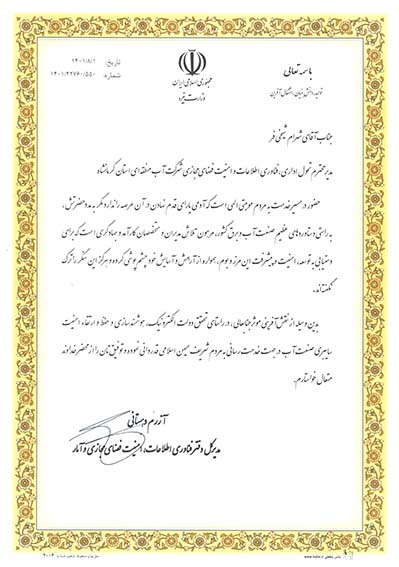 باسمه تعالی
تولید، دانش بنیان، اشتغال آفرین
جمهوری اسلامی ایران
وزارت نیرو
تاریخ: ۱۴۰۱/۸/۱
شماره: ۱۴۰۱/۴۲۷۶۰/۵۵۰
جناب آقای شهرام شیخی فر
مدیر محترم تحول اداری، فناوری اطلاعات و امنیت فضای مجازی شرکت آب منطقه ای استان کرمانشاه
حضور در مسیر خدمت به مردم موهبتی الهی است که آدمی را یارای قدم نهادن در آن عرصه را ندارد مگر به مدد حضرتش،
به راستی دستاوردهای عظیم صنعت آب و برق کشور، مرهون تلاش مدیران و متخصصان کارآمد و جهادگری است که برای
دستیابی به توسعه، امنیت و پیشرفت این مرز و بوم، همواره از آرامش و آسایش خود چشم پوشی کرده و هرگز این سنگر را ترک
نگفته اند.
بدین وسیله از نقش آفرینی موثر جنابعالی، در راستای تحقق دولت الکترونیک، هوشمندسازی و حفظ و ارتقاء امنیت
سایبری صنعت آب در جهت خدمت رسانی به مردم شریف میهن اسلامی قدردانی نموده و توفیق تان را از محضر خداوند
متعال خواستارم.
آزرم دهستانی
مدیرکل دفتر فناوری اطلاعات، امنیت فضای مجازی و آمار